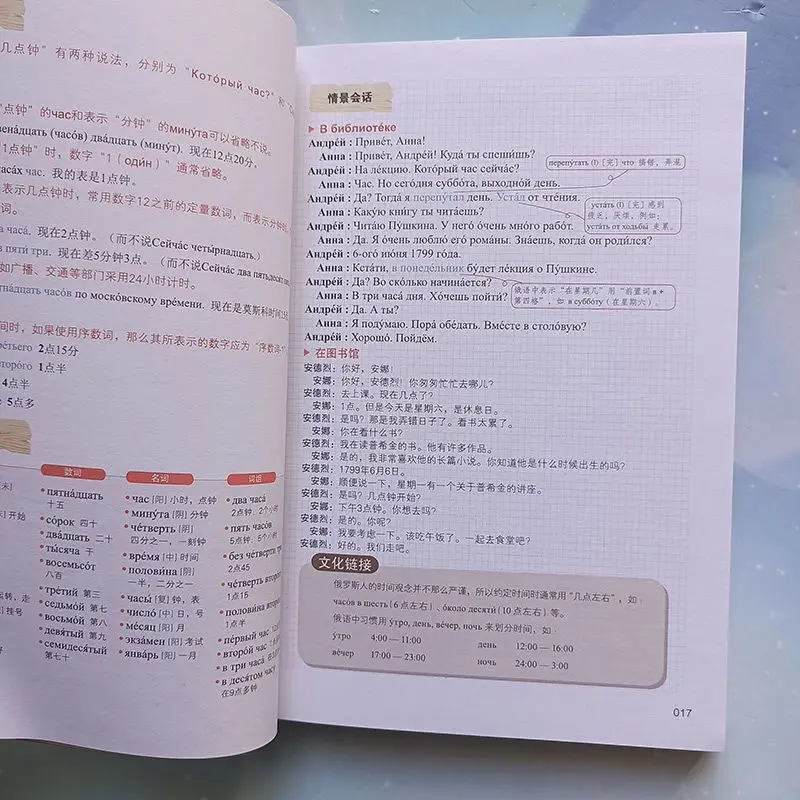 几点钟”有两种说法，分别为“Кото́рый час?”和
“点钟”的час和表示“分钟”的мину́та可以省略不说。
два́дцать (мину́т). 现在12点20分。
“1点钟”时，数字“1（оди́н）”通常省略。
час. 我的表是1点钟。
表示几点钟时，常用数字12之前的定量数词，而表示分钟时
词。
часа́. 现在2点钟。（而不说Сейча́с четы́рнадцать.）
в пять три. 现在差5分钟3点。（而不说Сейча́с два пятьдеся́т
如广播、交通等部门采用24小时计时。
часо́в по моско́вскому вре́мени. 现在是莫斯科时间
间时，如果使用序数词，那么其所表示的数字应为“序数词-1”
тре́тьего 2点15分
второ́го 1点半
4点半
5点多
数词
пятна́дцать
十五
со́рок 四十
два́дцать 二十
ты́сяча 千
восемьсо́т
八百
тре́тий 第三
седьмо́й 第七
восьмо́й 第八
девя́тый 第九
семидеся́тый
第七十
名词
час [阳] 小时，点钟
мину́та [阴] 分钟
че́тверть [阴]
四分之一，一刻钟
вре́мя [中] 时间
полови́на [阴]
一半，二分之一
часы́ [复] 钟，表
число́ [中] 日，号
ме́сяц [阳] 月
экза́мен [阳] 考试
янва́рь [阳] 一月
词组
два часа́
2点钟，2个小
пять часо́в
5点钟，5个小
без че́тверти
2点45
че́тверть
1点15
полови́на
1点半
пе́рвый час
второ́й час
в три часа́
в деся́том часу́
在9点多钟
情景会话
В библиоте́ке
Андре́й : Приве́т, А́нна!
Анна : Приве́т, Андре́й! Куда́ ты спеши́шь?
Андре́й : На ле́кцию. Кото́рый час сейча́с?
Анна : Час. Но сего́дня суббо́та, выходно́й день.
Андре́й : Да? Тогда́ я перепу́тал день. Уста́л от чте́ния.
Анна : Каку́ю кни́гу ты чита́ешь?
Андре́й : Чита́ю Пу́шкина. У него́ о́чень мно́го рабо́т.
Анна : Да. Я о́чень люблю́ его́ рома́ны. Зна́ешь, когда́ он роди́лся?
Андре́й : 6-ого ию́ня 1799 го́да.
Анна : Кста́ти, в понеде́льник бу́дет ле́кция о Пу́шкине.
Андре́й : Да? Во ско́лько начина́ется?
Анна : В три часа́ дня. Хо́чешь пойти́?
Андре́й : Да. А ты?
Анна : Я поду́маю. Пора́ обе́дать. Вме́сте в столо́вую?
Андре́й : Хорошо́. Пойдём.
перепу́тать (I) [完] что 搞错，弄混
уста́ть (I) [完] 感到
疲乏，厌烦，例如：
уста́ть от ходьбы́ 走累。
俄语中表示“在星期几”用“前置词 в +
第四格”，如 в суббо́ту（在星期六）。
在图书馆
安德烈：你好，安娜！
安娜：你好，安德烈！你匆匆忙忙去哪儿？
安德烈：去上课。现在几点了？
安娜：1点。但是今天是星期六，是休息日。
安德烈：是吗？那是我弄错日子了。看书太累了。
安娜：你在看什么书？
安德烈：我在读普希金的书。他有许多作品。
安娜：是的，我非常喜欢他的长篇小说。你知道他是什么时候出生的吗？
安德烈：1799年6月6日。
安娜：顺便说一下，星期一有一个关于普希金的讲座。
安德烈：是吗？几点钟开始？
安娜：下午3点钟。你想去吗？
安德烈：是的。你呢？
安娜：我要考虑一下。该吃午饭了。一起去食堂吧？
安德烈：好的。我们走吧。
文化链接
俄罗斯人的时间观念并不那么严谨，所以约定时间时通常用“几点左右”，如：
часо́в в шесть (6点左右)、о́коло десяти́ (10点左右) 等。
俄语中习惯用 у́тро, день, ве́чер, ночь 来划分时间，如：
у́тро 4:00 — 11:00 день 12:00 — 16:00
ве́чер 17:00 — 23:00 ночь 24:00 — 3:00
017